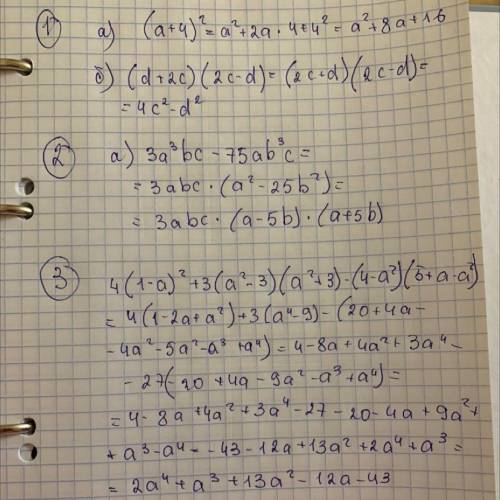 1 а) (a+4)² = a²+2a·4+4² = a²+8a+16
б) (d+2c)(2c-d) = (2c+d)(2c-d) =
= 4c²-d²
2 а) 3a³bc - 75ab³c =
= 3abc·(a²-25b²) =
= 3abc·(a-5b)·(a+5b)
3 4(1-a)²+3(a²-3)(a²+3)-(4-a²)(5+a-a²)
= 4(1-2a+a²)+3(a⁴-9)-(20+4a-
-4a²-5a²-a³+a⁴) = 4-8a+4a²+3a⁴-
-27(-20+4a-9a²-a³+a⁴) =
= 4-8a+4a²+3a⁴-27-20-4a+9a²+
+a³-a⁴ = -43-12a+13a²+2a⁴+a³ =
= 2a⁴+a³+13a²-12a-43